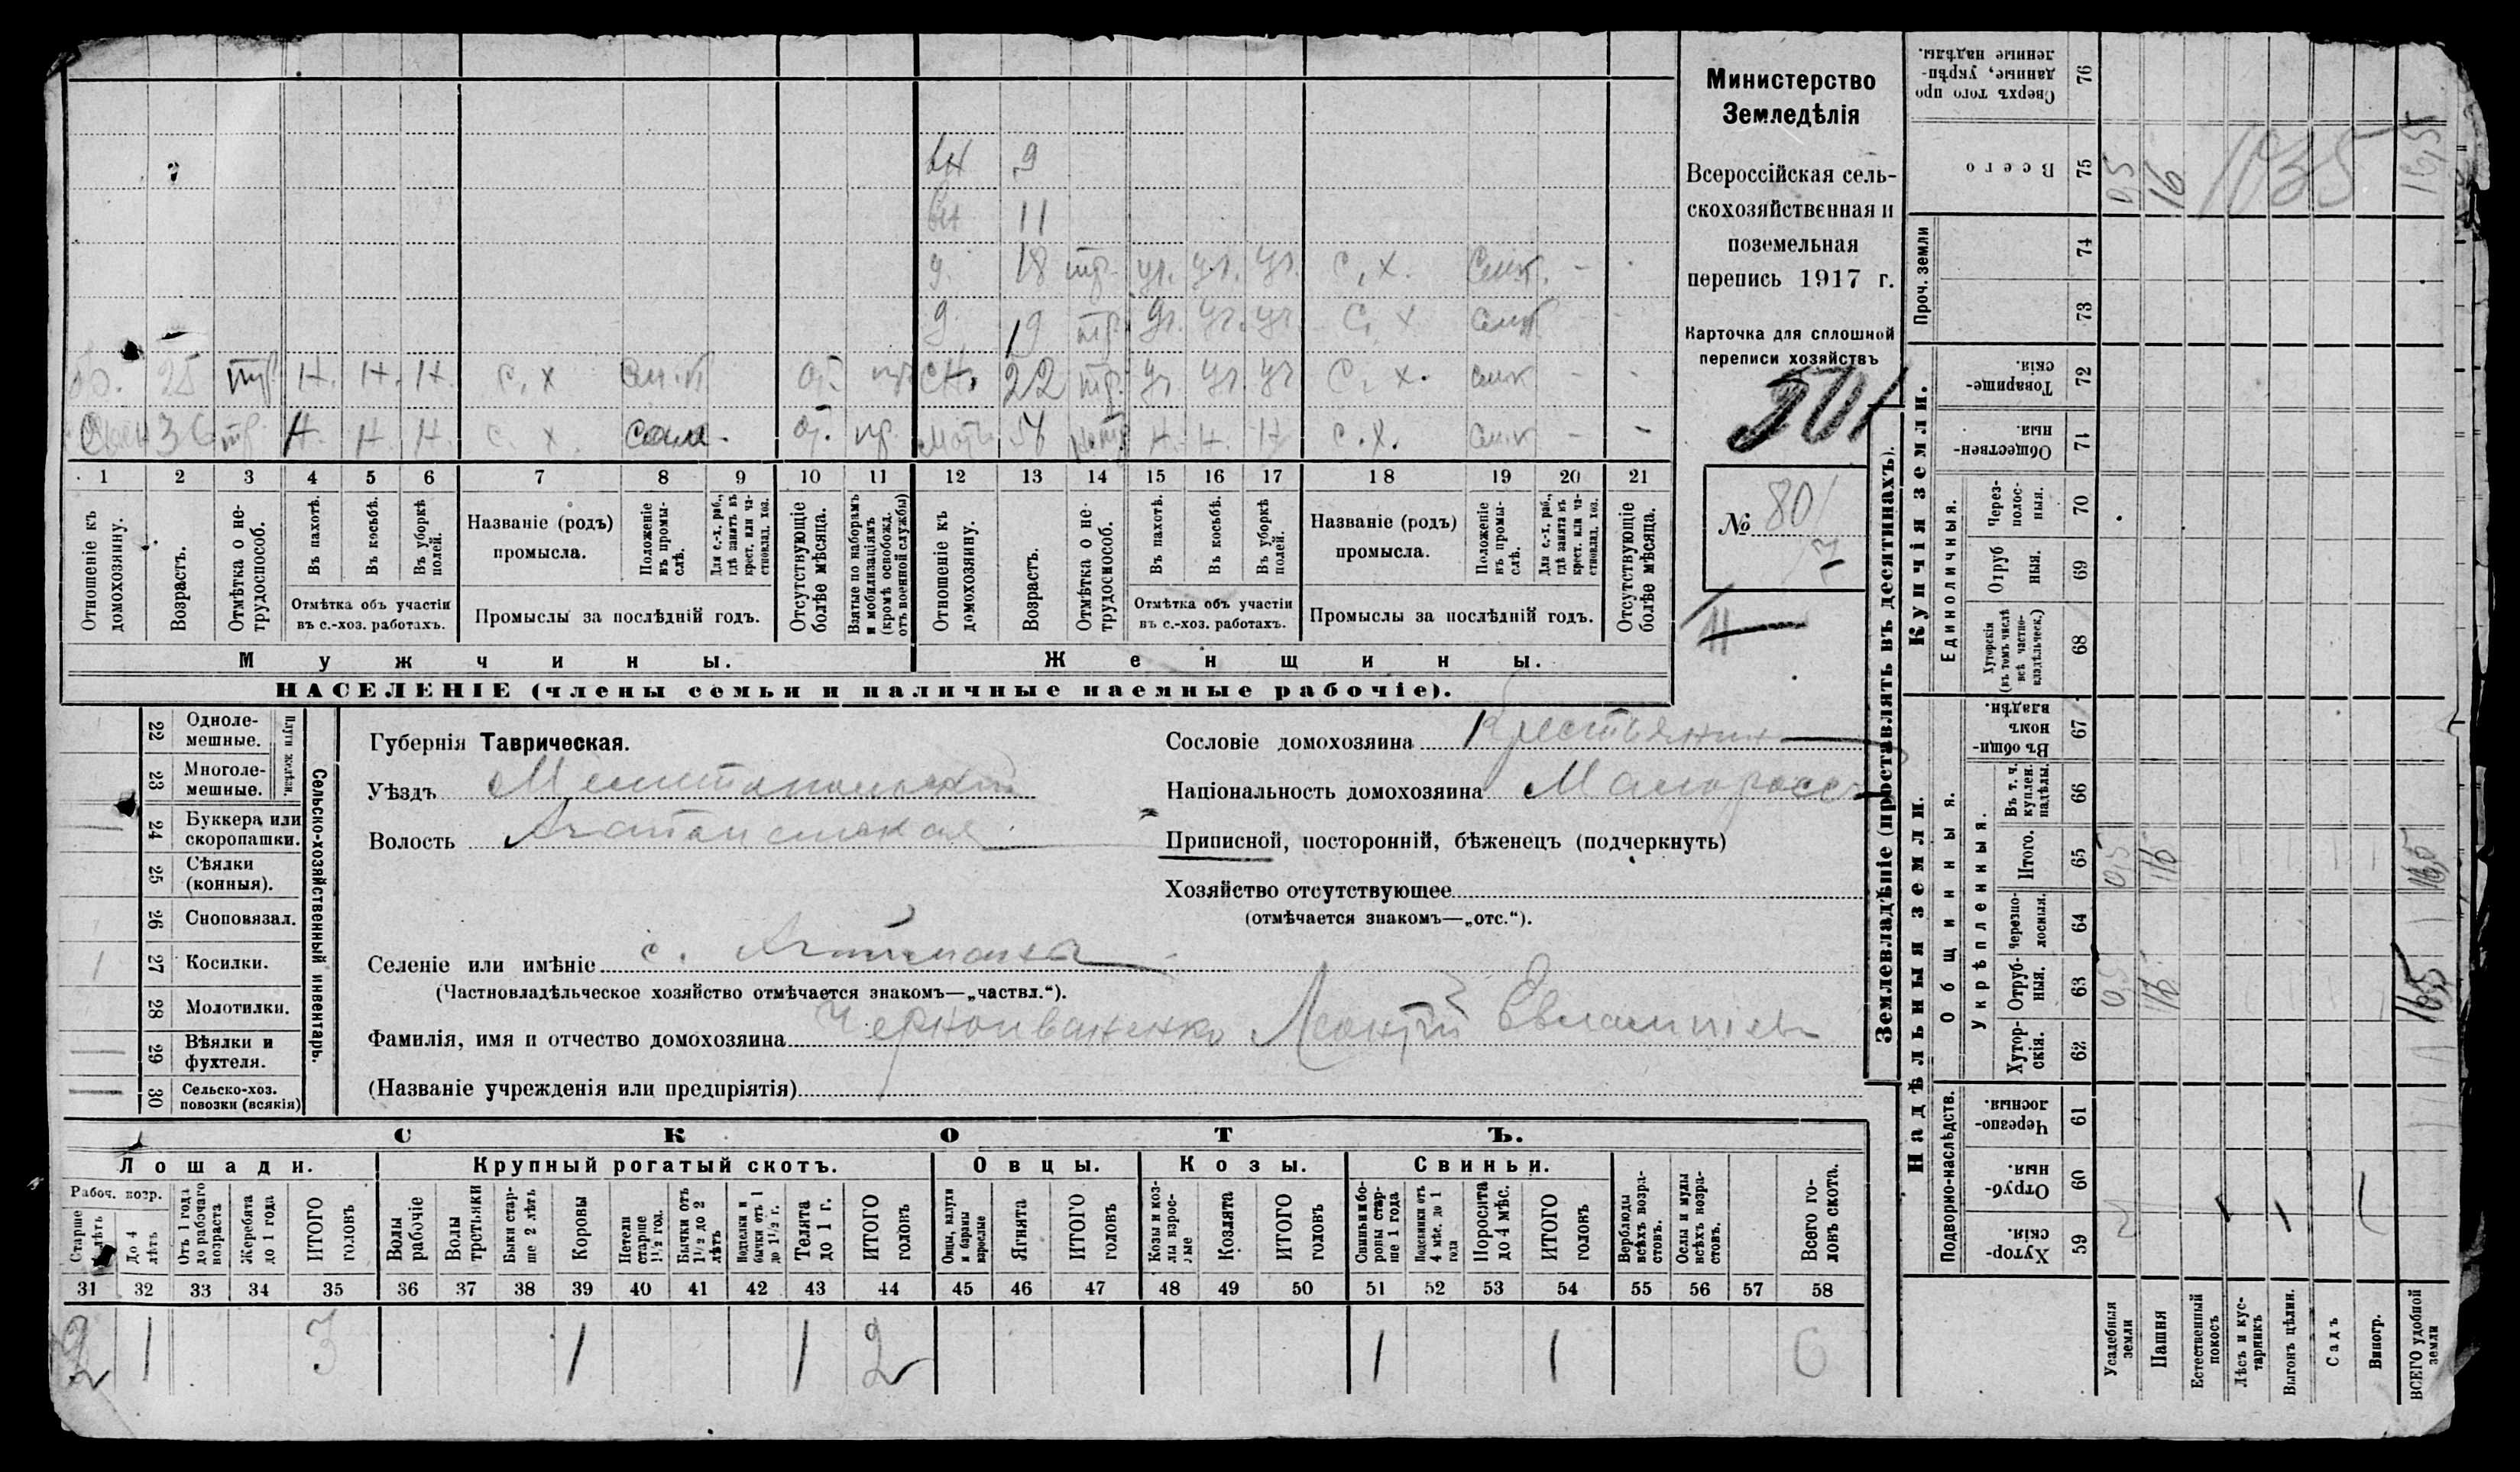 Министерство
Земледѣлія
Всероссійская сель-
скохозяйственная и
поземельная
перепись 1917 г.
Карточка для сплошной
переписи хозяйствъ
501
№ 801
вн 9
вн 11
д. 18 тр. уч. уч. уч. с. х. смк. - -
д. 19 тр. уч. уч. уч. с. х смк - -
25 тр. Н. Н. Н. с. х от. пр. сн. 22 тр. уч уч уч с. х. смк - -
36 тр. Н. Н. Н. с. х. сам. от. пр. мать Н. Н. Н с. х. смк - -
1 2 3 4 5 6 7 8 9 10 11 12 13 14 15 16 17 18 19 20 21
Отношеніе къ домохозяину.
Возрастъ.
Отмѣтка о не-трудоспособ.
Въ пахотѣ.
Въ косьбѣ.
Въ уборкѣ полей.
Отмѣтка объ участіи въ с.-хоз. работахъ.
Названіе (родъ) промысла.
Положеніе въ промы-слѣ.
Для с.-х. раб., гдѣ занятъ въ крест. или ча-стновлад. хоз.
Промыслы за послѣдній годъ.
Отсутствующіе болѣе мѣсяца.
Взятые по наборамъ и мобилизаціямъ (кромѣ освобожд. отъ военной службы)
Отношеніе къ домохозяину.
Возрастъ.
Отмѣтка о не-трудоспособ.
Въ пахотѣ.
Въ косьбѣ.
Въ уборкѣ полей.
Отмѣтка объ участіи въ с.-хоз. работахъ.
Названіе (родъ) промысла.
Положеніе въ промы-слѣ.
Для с.-х. раб., гдѣ занята въ крест. или ча-стновлад. хоз.
Промыслы за послѣдній годъ.
Отсутствующіе болѣе мѣсяца.
Мужчины. Женщины.
НАСЕЛЕНІЕ (члены семьи и наличные наемные рабочіе).
Сельско-хозяйственный инвентарь.
Плуги желѣзн.
22 Одноле-мешные.
23 Многоле-мешные.
24 Буккера или скоропашки.
25 Сѣялки (конныя).
26 Сноповязал.
1 27 Косилки.
28 Молотилки.
29 Вѣялки и фухтеля.
30 Сельско-хоз. повозки (всякія)
Губернія Таврическая.
Уѣздъ Мелитопольскій
Волость Агайманская
Селеніе или имѣніе с. Агайманы
(Частновладѣльческое хозяйство отмѣчается знакомъ—„частвл.“).
Фамилія, имя и отчество домохозяина Черноиваненко Леонтій Евлампіев
(Названіе учрежденія или предпріятія)
Сословіе домохозяина Крестьянин
Національность домохозяина Малоросс
Приписной, посторонній, бѣженецъ (подчеркнуть)
Хозяйство отсутствующее
(отмѣчается знакомъ—„отс.“).
СКОТЪ.
Лошади. Крупный рогатый скотъ. Овцы. Козы. Свиньи.
Рабоч. возр.
Старше 4 лѣтъ
До 4 лѣтъ
Отъ 1 года до рабочаго возраста
Жеребята до 1 года
ИТОГО головъ
Волы рабочіе
Волы третьяки
Быки стар-ше 2 лѣтъ
Коровы
Нетели старше 1½ год.
Бычки отъ 1½ до 2 лѣтъ
Нетели и бычки отъ 1 до 1½ г.
Телята до 1 г.
ИТОГО головъ
Овцы, валухи и бараны взрослые
Ягнята
ИТОГО головъ
Козы и коз-лы взрос-лые
Козлята
ИТОГО головъ
Свиньи и бо-ровы стар-ше 1 года
Подсвинки отъ 4 мѣс. до 1 года
Поросята до 4 мѣс.
ИТОГО головъ
Верблюды всѣхъ возра-стовъ.
Ослы и мулы всѣхъ возра-стовъ.
Всего го-ловъ скота.
31 32 33 34 35 36 37 38 39 40 41 42 43 44 45 46 47 48 49 50 51 52 53 54 55 56 57 58
2 1 3 1 1 2 1 1 6
Землевладѣніе (проставлять въ десятинахъ).
Надѣльныя земли. Купчія земли. Проч. земли
Подворно-наслѣдств.
Общинныя.
Укрѣпленныя.
Единоличныя.
Хутор-скія. 59
Отруб-ныя. 60
Черезпо-лосныя. 61
Хутор-скія. 62
Отруб-ныя. 63 0,5 16 16,5
Черезпо-лосныя. 64
Итого. 65 0,5 16 16,5
Въ т. ч. куплен. надѣлы. 66
Въ общи-номъ владѣн. 67
Хуторскія (въ томъ числѣ всѣ частно-владѣльческ.) 68
Отруб ныя. 69
Через-полос-ныя. 70
Обществен-ныя. 71
Товарище-скія. 72
73
74
Всего 75 0,5 16 16,5
1035
Сверхъ того про данные, укрѣп-ленные надѣлы. 76
Усадебныя земли
Пашня
Естественный покосъ
Лѣсъ и кус-тарникъ
Выгонъ цѣлин.
Садъ
Виногр.
ВСЕГО удобной земли